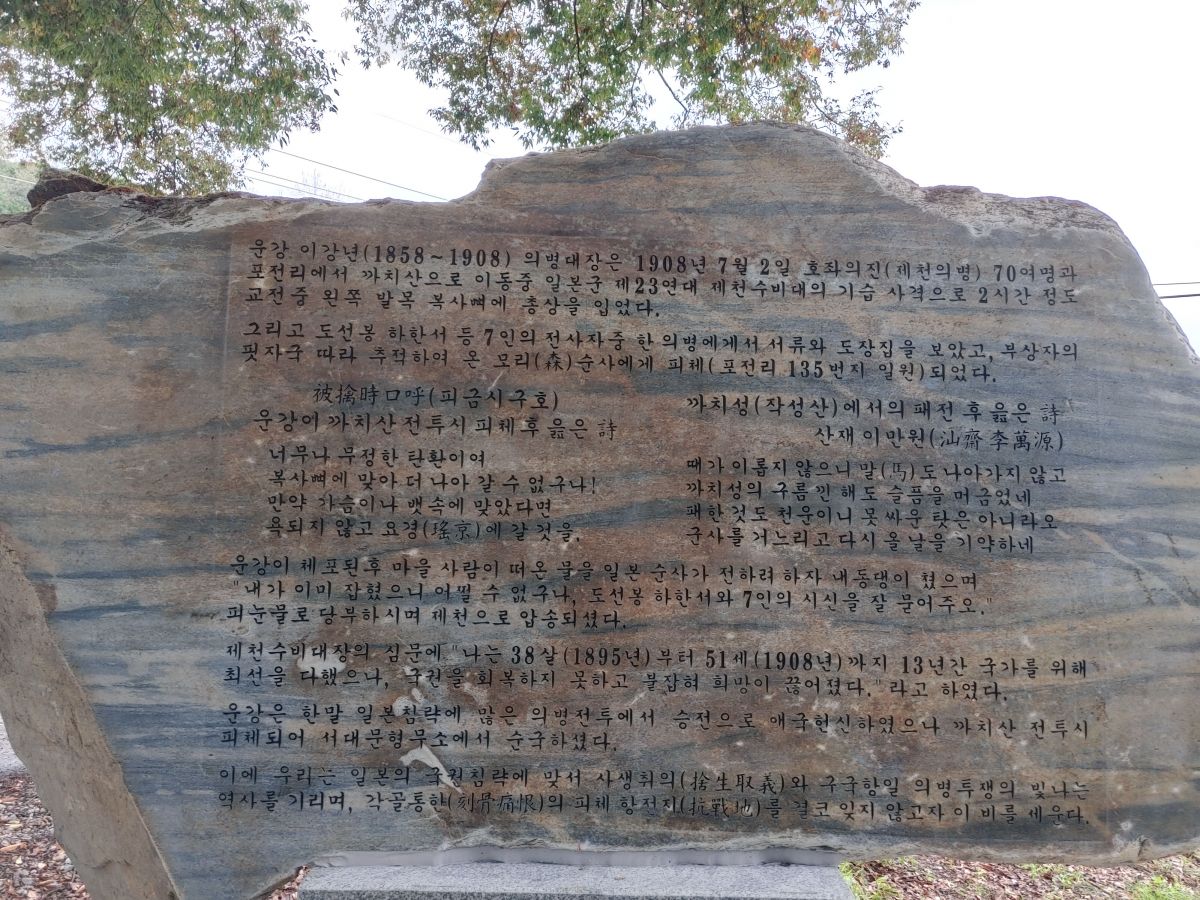 운강 이강년(1858~1908) 의병대장은 1908년 7월 2일 호좌의진(제천의병) 70여명과
포전리에서 까치산으로 이동중 일본군 제23연대 제천수비대의 기습 사격으로 2시간 정도
교전중 왼쪽 발목 복사뼈에 총상을 입었다.
그리고 도선봉 하한서 등 7인의 전사자중 한 의병에게서 서류와 도장집을 보았고, 부상자의
핏자국 따라 추적하여 온 모리(森)순사에게 피체(포전리 135번지 일원)되었다.
被擒時口呼(피금시구호)
운강이 까치산 전투시 피체 후 읊은 詩
너무나 무정한 탄환이여
복사뼈에 맞아 더 나아 갈 수 없구나!
만약 가슴이나 뱃속에 맞았다면
욕되지 않고 요경(瑤京)에 갈 것을.
까치성(작성산)에서의 패전 후 읊은 詩
산재 이만원(汕齋 李萬源)
때가 이롭지 않으니 말(馬)도 나아가지 않고
까치성의 구름 낀 해도 슬픔을 머금었네
패한 것도 천운이니 못 싸운 탓은 아니라오
군사를 거느리고 다시 올 날을 기약하네
운강이 체포된 후 마을 사람이 떠온 물을 일본 순사가 전하려 하자 내동댕이 쳤으며
"내가 이미 잡혔으니 어떨 수 없구나, 도선봉 하한서와 7인의 시신을 잘 묻어주오."
피눈물로 당부하시며 제천으로 압송되셨다.
제천수비대장의 심문에 "나는 38살(1895년)부터 51세(1908년)까지 13년간 국가를 위해
최선을 다했으나, 국권을 회복하지 못하고 붙잡혀 희망이 끊어졌다."라고 하였다.
운강은 한말 일본침략에 많은 의병전투에서 승전으로 애국헌신하였으나 까치산 전투시
피체되어 서대문형무소에서 순국하셨다.
이에 우리는 일본의 국권침략에 맞서 사생취의(捨生取義)와 구국항일 의병투쟁의 빛나는
역사를 기리며, 각골통한(刻骨痛恨)의 피체 항전지(抗戰地)를 결코 잊지 않고자 이 비를 세운다.